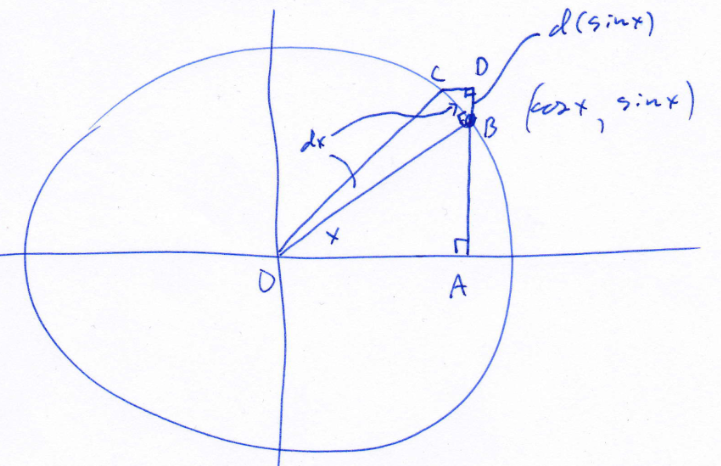 d(sinx)
C D
B (cosx, sinx)
dx
x
O A